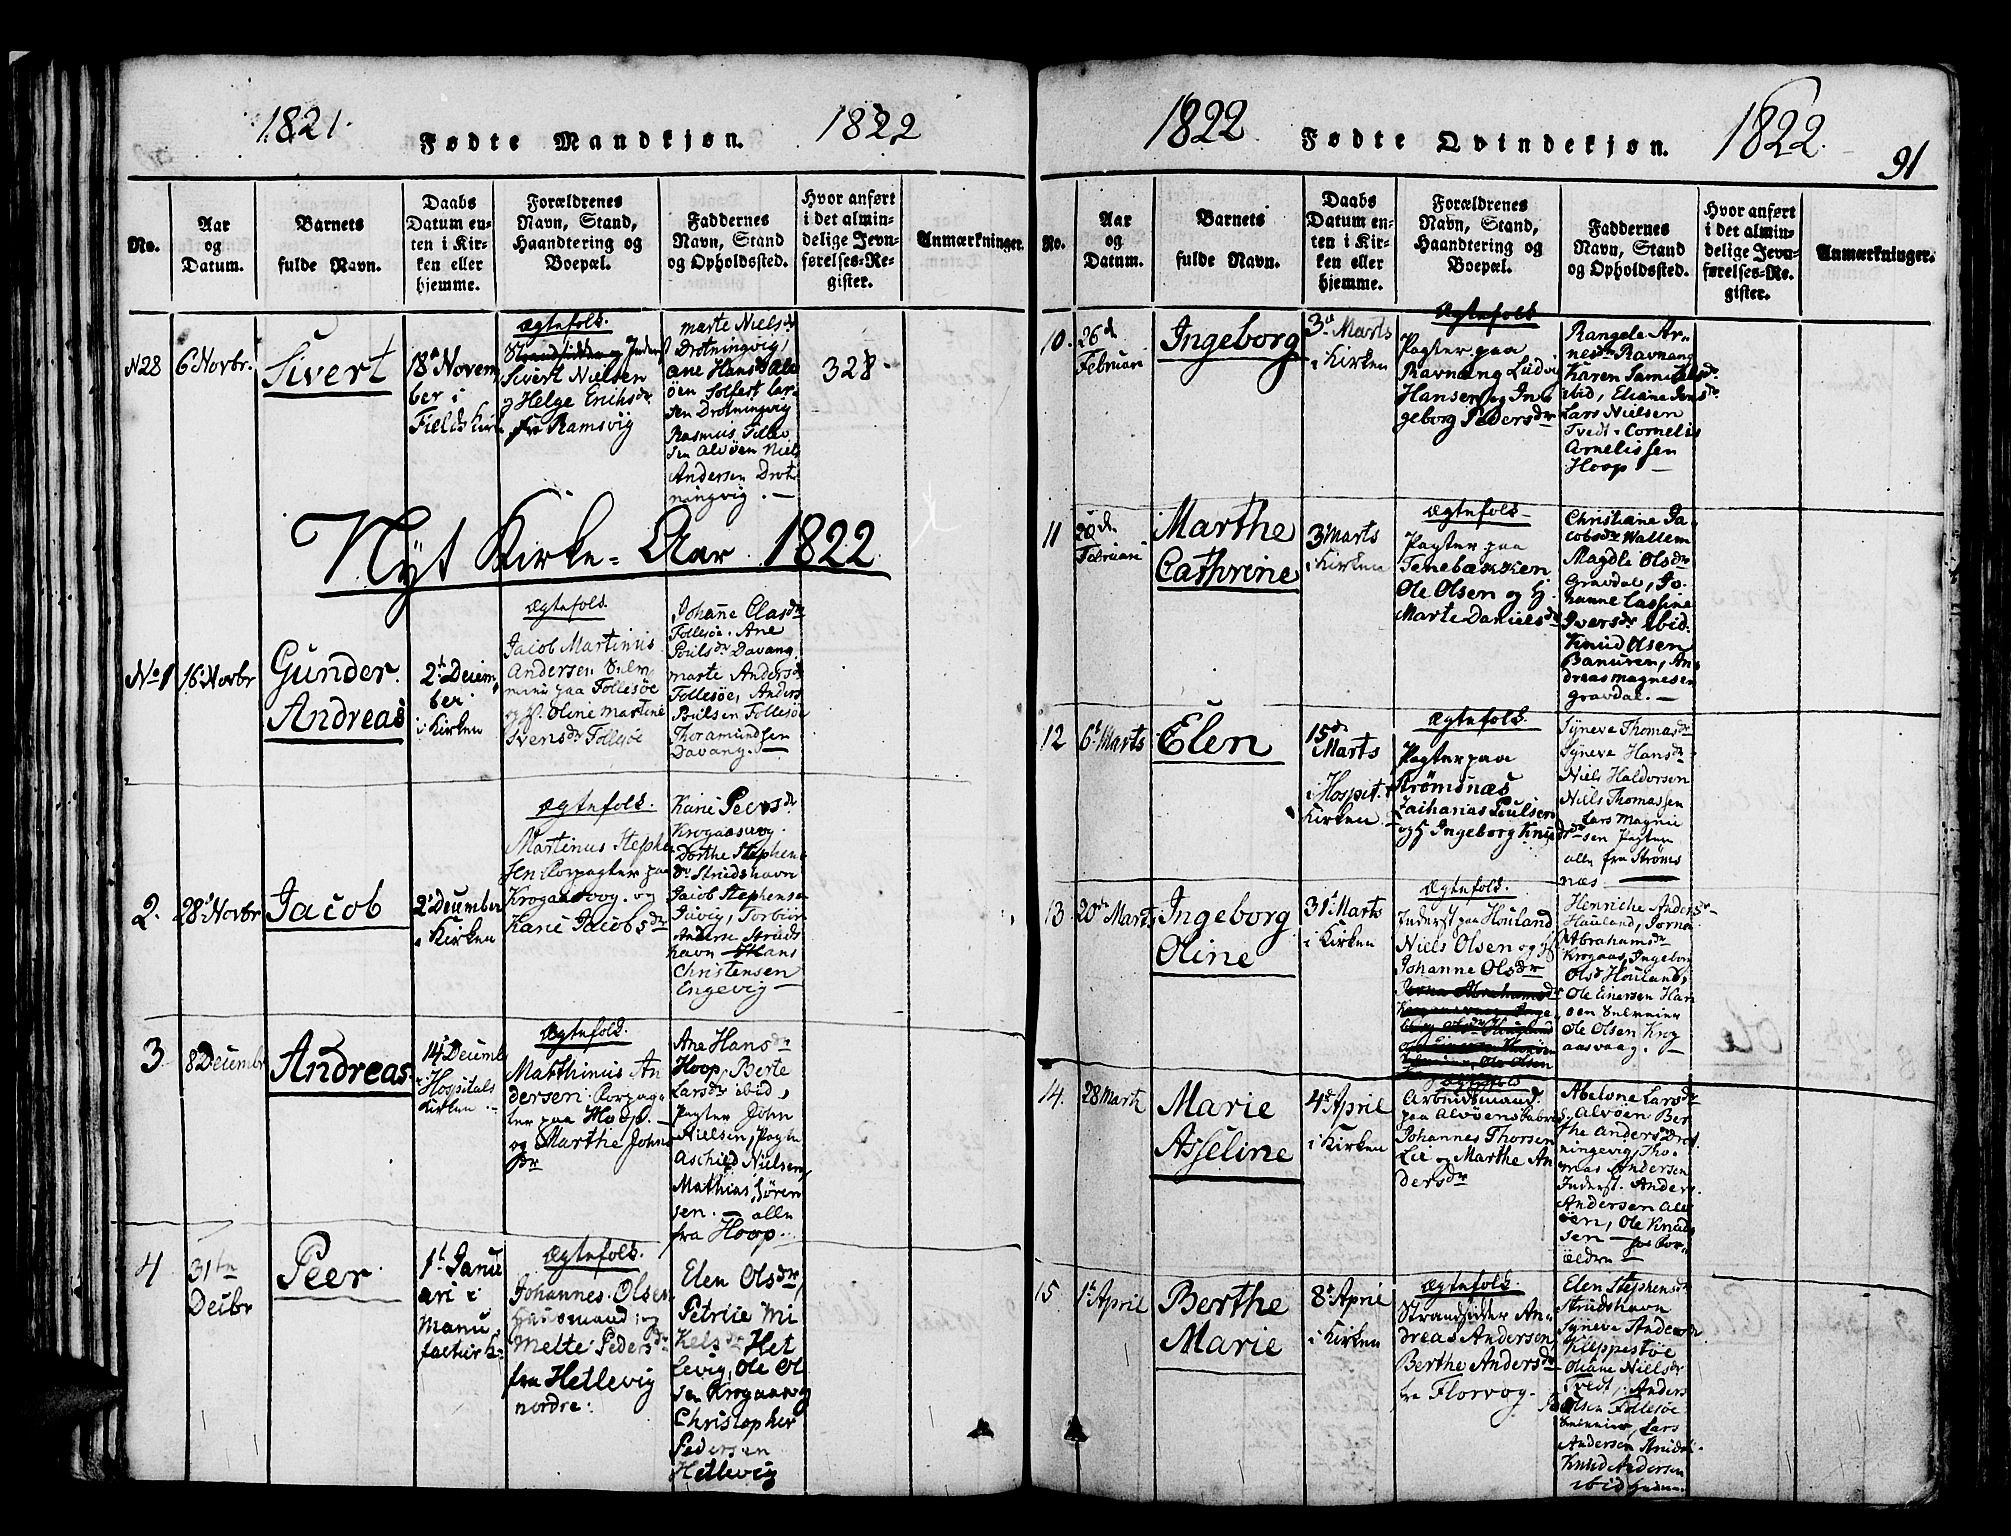 1821.
Fødte Mandkjøn.
1822
No.
Aar
og
Datum.
Barnets
fulde Navn.
Daabs
Datum en-
ten i Kir-
ken eller
hjemme.
Forældrenes
Navn, Stand,
Haandtering og
Boepæl.
Faddernes
Navn, Stand
og Opholdssted.
Hvor anført
i det almin-
delige Jevn-
førelses-Re-
gister.
Anmærkninger.
N28
6 Novbr.
Sivert
18d Novem
ber i
Field Kirk
Ægtefolk.
Sivert Nielsen
og Helge Erichsdr
fr Ramsvig
marte Nielsdr
Drotningvig,
ane Hansdr Alv
öen Solfert Lar-
sen Drotningvig
Rasmus Tillev
sen Alvöen Niels
Andersen Drot
ningvig. —
328
Nyt Kirke-Aar 1822
No 1
16 Novbr
Gunder
Andreas
2d Decem
ber
i Kirken
Ægtefolk.
Jacob Martinus
Andersen
paa Follesöe
og H. Oline Martine
Svensdr Follesöe
Johanne Clasdr
Follesöe. Ane
Poulsdr Davang.
marte Andersdr
Follesöe, Anders
Poulsen Follesöe
Thoramundsen
Davang. —
2.
28 Novbr
Jacob
2d December
i Kirken
Ægtefolk.
Martinus Stephen
sen Forpagter paa
Krogaasvog. og
Karie Jacobsdr
Karie Peersdr
Krogaasvog.
Dorthe Stephens
dr Strudshavn
Jacob Stephensen
Juvig, Torbiör
Anderse Struds
havn Hans
Christensen
Engevig —
3
8 Decembr
Andreas
14 Decemb
i Hospitals
Kirken.
Ægtefolk.
Marthinus An
dersen. Forpag-
ter paa Hoop. —
og Marthe Johns
dr
Ane Hansdr
Hoop, Berte
Larsdr ibid,
Pagter John
Nielsen, Pagte
Aschild Nielsen,
Mathias Sören
sen. — alle
fra Hoop.
4
31te
Decbr
Peer
1t Janu
ari i
Manu
factur k:
Ægtefolk.
Johannes Olsen
Huusmand og
Mette Pedersdr
fra Hetlevig
nordre.
Elen Olsdr,
Petrlie Mi
Kelsdr Het
levig, Ole Ol
sen Krogaasvog
Christopher
Pedersen
Hetlevig
1822
Fødte Qvindekjøn.
1822.
91
No.
Aar
og
Datum.
Barnets
fulde Navn.
Daabs
Datum en-
ten i Kir-
ken eller
hjemme.
Forældrenes
Navn, Stand,
Haandtering og
Boepæl.
Faddernes
Navn, Stand
og Opholdssted.
Hvor anført
i det almin-
delige Jevn-
førelses-Re-
gister.
Anmærkninger.
10.
26d
Februari
Ingeborg
3d Marts
i Kirken
Ægtefolk
Pagter paa
Ravnang Ludvig
Hansen og In
geborg Pedersdr
Rangele Ar-
nesdr Ravnang
Karen Samuelsdr
ibid, Eliane Jensdr
Lars Nielsen
Tvedt. Cornelis
Cornelissen
Hoop —
11
20d.
Februari
Marthe
Cathrine
3 Marts
i Kirken
Ægtefolk
Pagter paa
Tenebækken
Ole Olsen og H.
Marte Danielsdr
Christiane Ja-
cobsdr Wallem
Magdle Olsdr
Gravdal, Jo
hanne Cassine
Iversdr Ibid.
Knud Olsen
Banuren, An
dreas Magnesen
gravdal. —
12
6t Marts
Elen
15d
Marts
i Hospit.
Kirken.
Ægtefolk.
Pagter paa
Strömsnæs
Zacharias Poulsen
og H Ingeborg Knudsdr
Syneve Thomasdr
Syneve Hansdr
Niels Haldorsen
Niels Thomassen
Lars Magne
sen Pagter
alle fra Ströms
næs
13.
20de Marts
Ingeborg
Oline
31t Marts
i Kirken
Ægtefolk.
Inderst paa Houland
Niels Olsen og H
Johanne Olsdr
Henriche Andersdr
Hauland, Jorna
Abrahamsdr
Krogaas, Ingebor
Olsdr Houland,
Ole Einersen Han
öen
Ole Olsen Krog
aasvaag. —
14.
28 Marts
Marie
Asseline
4d April
i Kirken
Ægtefolk
Arbeidsmand.
paa Alvöens Fabrik
Johannes Thorsen
Lie og Marthe An
dersdr
Abelone Larsdr
Alvöen Ber
the Andersdr Drot
ningevig, Tho-
mas Andersen
Inderst. Anders
Andersen Alv
öen, Ole Knud
sen — for For-
ældre —
15.
1t April
Berthe
Marie
8d April
i Kirken
Ægtefolk.
Strandsidder An-
dreas Andersen
Berthe Andersdr
fra Florvog.
Elen Stephensdr
Strudshavn
Syneve Andersdr
Kleppestöe
Oliane Nielsdr
Tvedt, Anders
Olsen Follesöe
Lars
Andersen Strudsh
Knud Andersen
ibid